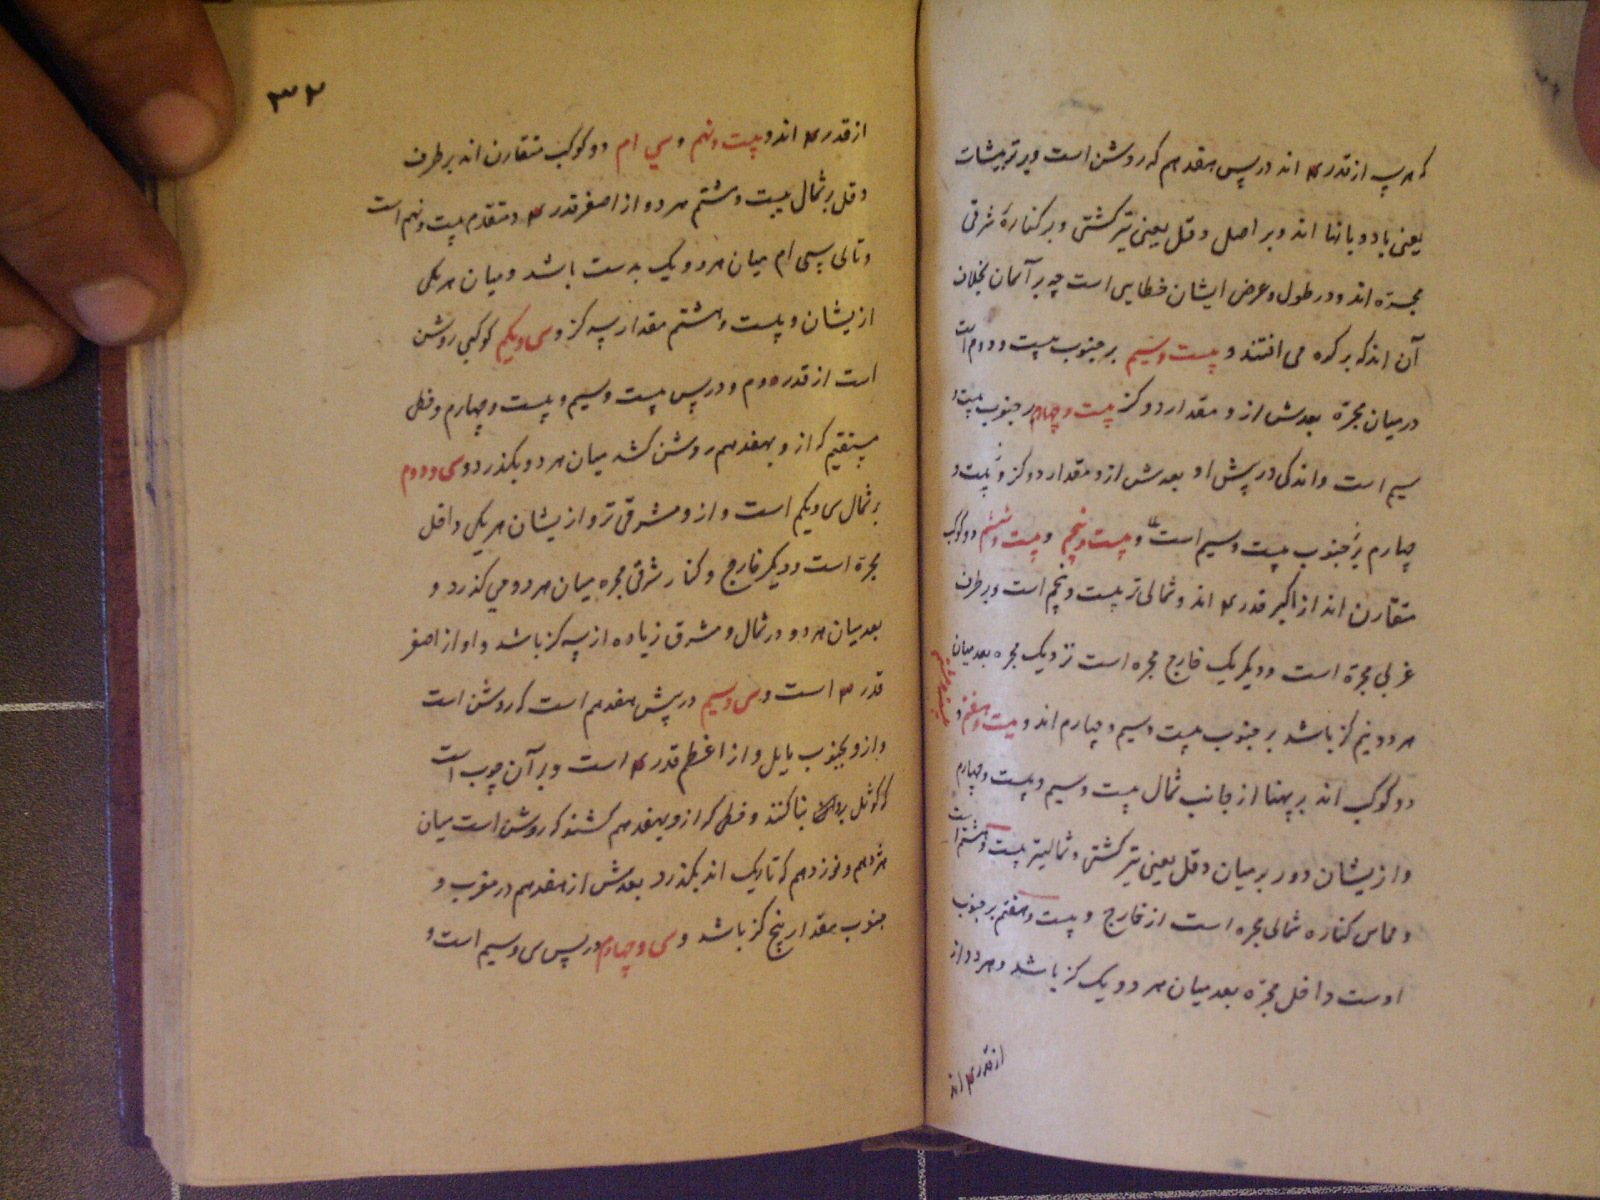 که هر سه از قدر ۴ اند در پس هفدهم که روشن است و بر تربیشات
یعنی بادوبانها اند و بر اصل دقل یعنی تیر کشتی و بر کنارۀ شرقی
مجرّه اند و در طول و عرض ایشان خطایی است چه بر آسمان بخلاف
آن اند که بر کره می افتند و بیست و سیم بر جنوب بیست و دوم است
در میان مجرّه بعدش از و مقدار دو کز بیست و چهارم بر جنوب بیست و
سیم است و اندکی در پیش او بعدش از و مقدار دو کز و بیست و
چهارم بر جنوب بیست و سیم است و بیست و پنجم و بیست و ششم دو کوکب
متقارن اند از اکبر قدر ۴ اند و شمالی تر بیست و پنجم است و بر طرف
غربی مجرّه است و دیگر یک خارج مجره است نزدیک مجره بعد میان
هر دو نیم کز باشد بر جنوب بیست و سیم و چهارم اند و بیست و هفتم و
بیست و هشتم
دو کوکب اند بر پهنا از جانب شمال بیست و سیم و بیست و چهارم
و از یشان دور بر میان دقل یعنی تیر کشتی و شمالیتر بیست و هشتم است
و مماس کناره شمالی مجره است از خارج و بیست و هفتم بر جنوب
اوست داخل مجرّه بعد میان هر دو یک کز باشد و هر دو از
از قدر ۴ اند
۳۲
از قدر ۴ اند و بیست و نهم و سی ام دو کوکب متقارن اند بر طرف
دقل بر شمال بیست و هشتم هر دو از اصغر قدر ۴ و متقدم بیست و نهم است
و تالی سی ام میان هر دو یک بدست باشد و میان هر یکی
از یشان و بیست و هشتم مقدار سه کز و سی و یکم کوکبی روشن
است از قدر دوم و در پس بیست و سیم و بیست و چهارم و خطی
مستقیم که از و بهفدهم روشن کشد میان هر دو بگذرد و سی و دوم
بر شمال سی و یکم است و از و مشرقی تر و از یشان هر یکی داخل
مجرّه است و دیگر خارج و کنار شرقی مجره میان هر دو می گذرد و
بعد میان هر دو در شمال و مشرق زیاده از سه کز باشد و او از اصغر
قدر ۳ است و سی و سیم در پیش هفدهم است که روشن است
و از و بجنوب مایل و از اعظم قدر ۴ است و بر آن چوب است
که کوثل بر آن بنا کنند و خطی که از و بهفدهم کشند که روشن است میان
هژدهم و نوزدهم که تاریک اند بگذرد بعدش از هفدهم در مغرب و
جنوب مقدار پنج کز باشد و سی و چهارم در پس سی و سیم است و